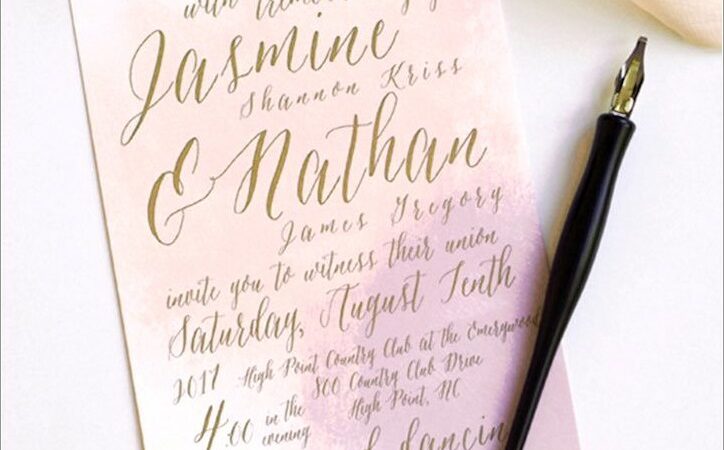 with
Jasmine
Shannon Kriss
& Nathan
James Gregory
invite you to witness their union
Saturday, August Tenth
2017 High Point Country Club at the Emerywood
800 Country Club Drive
High Point, NC
4:00 in the
evening
dancin